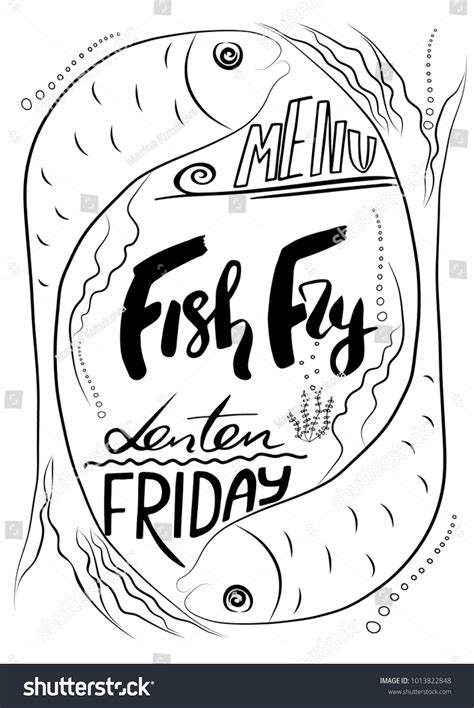 MENU
Fish Fry
Lenten
FRIDAY
shutterstock®
IMAGE ID: 1013822848
www.shutterstock.com